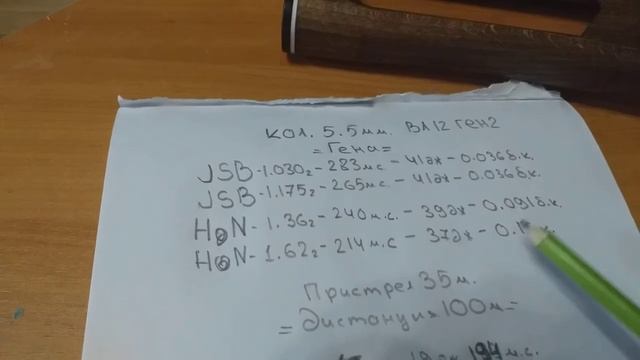 Кол. 5.5мм. ВЛ12 Ген2
=Гена=
JSB-1.030г-283м.с.-41дж-0.036б.к.
JSB-1.175г-265м.с.-41дж-0.036б.к.
H&N-1.36г-240м.с.-39дж-0.031б.к.
H&N-1.62г-214м.с-37дж-
Пристрел 35м.
=Дистанция 100м=
194м.с.